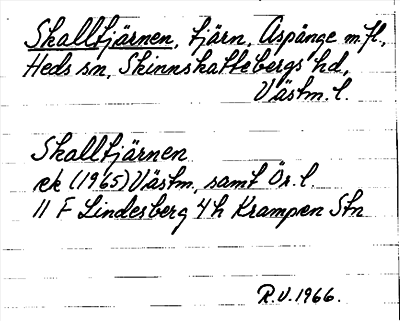 Skalltjärnen, tjärn, Aspänge m.fl.,
Heds sn, Skinnskattebergs hd,
Västm. l.
Skalltjärnen
ek (1965) Västm. samt Ör. l.
11 F Lindesberg 4h Krampen Stn
R.V. 1966.